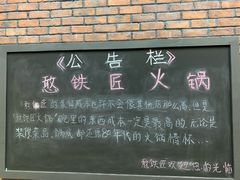 《公告栏》
憨铁匠火锅
"憨铁匠 的装饰成本也许不会像其他店那么高,但是
"憨铁匠火锅"碗里的东西成本一定是最高的,无论是
装修菜品、锅底 都还原80年代的火锅情怀…
憨铁匠欢迎您的光临